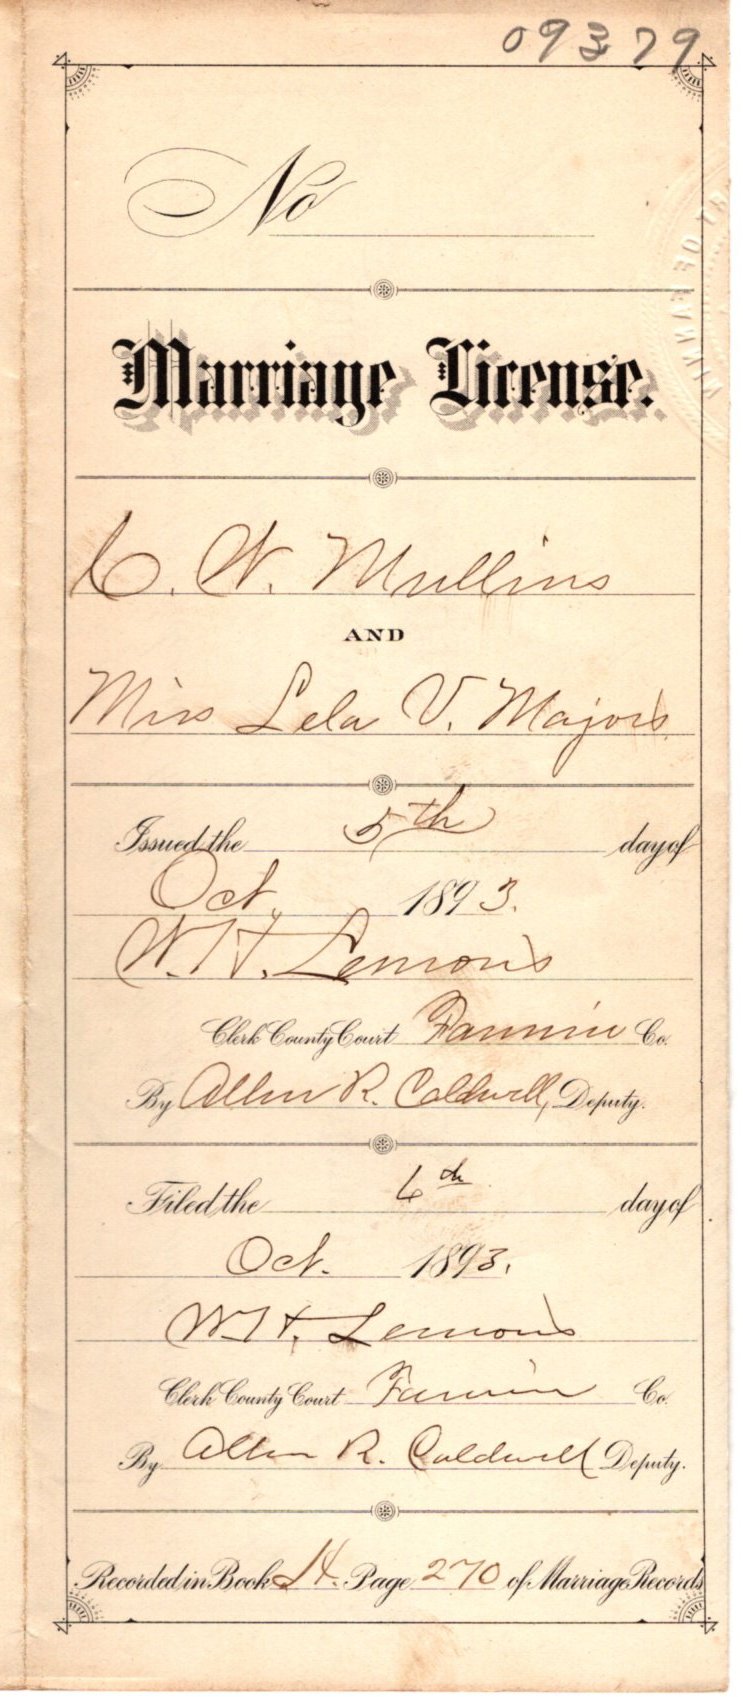 09379
No
Marriage License.
C. W. Mullins
AND
Miss Lela V. Majors
Issued the 5th day of
Oct. 1893.
W. H. Lemons
Clerk County Court Fannin Co.
By Allen R. Caldwell, Deputy.
Filed the 6th day of
Oct. 1893.
W. H. Lemons
Clerk County Court Fannin Co.
By Allen R. Caldwell Deputy.
Recorded in Book H. Page 270 of Marriage Records